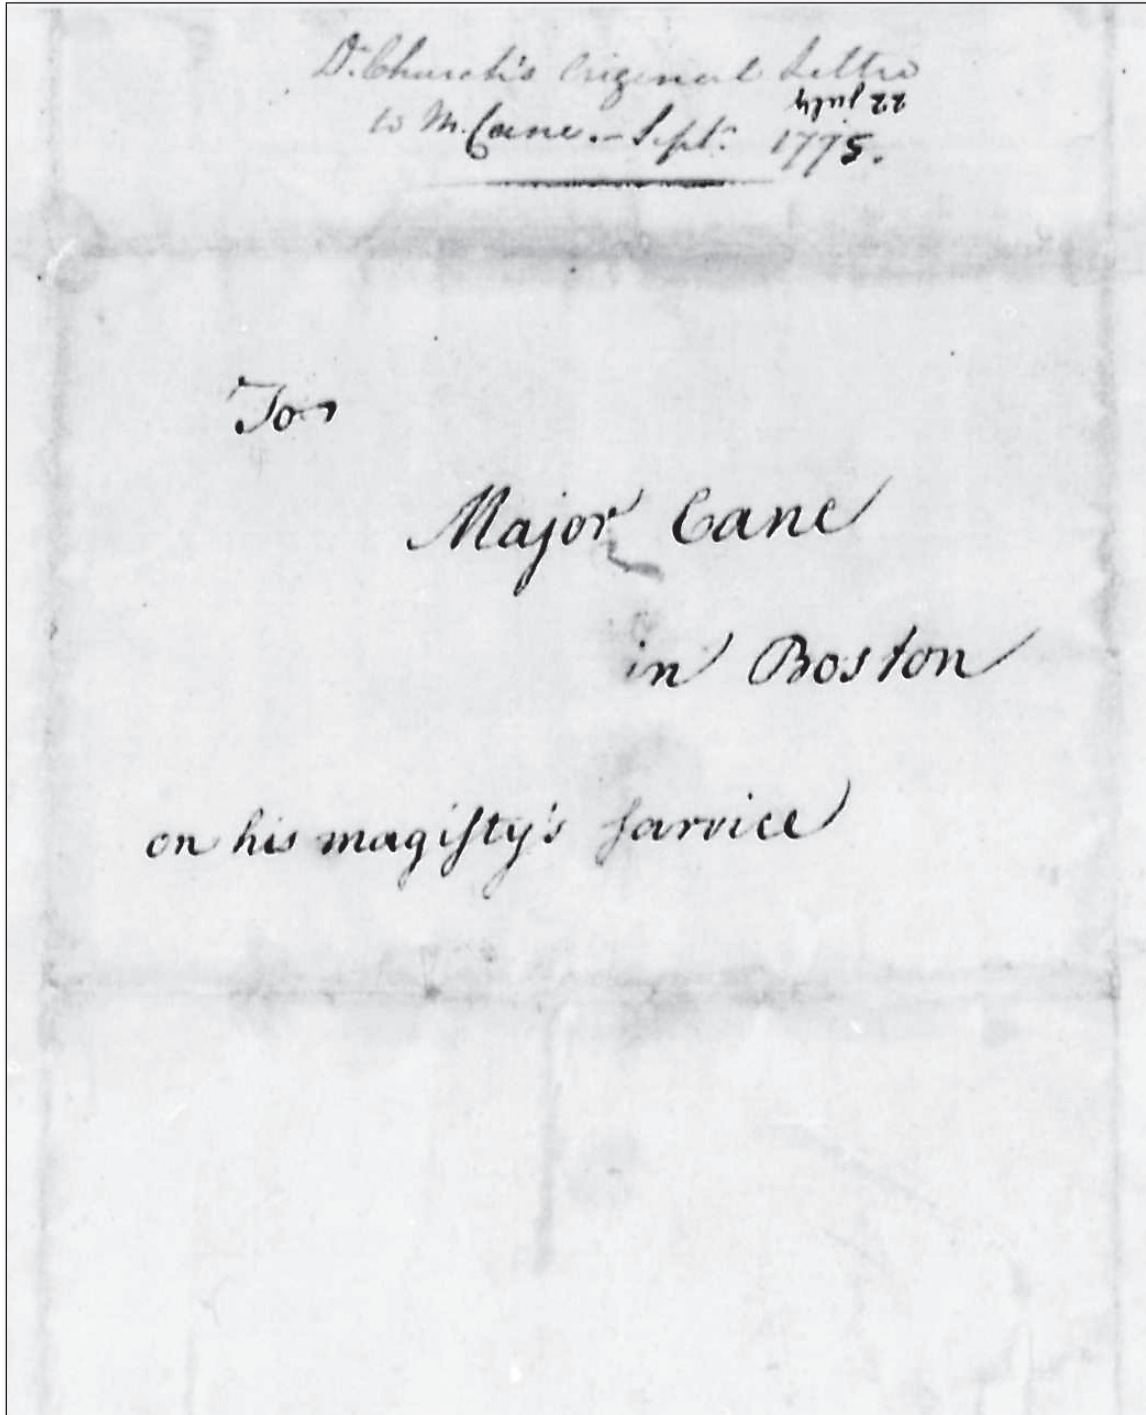 Dr. Church's Original Letter
to M. Cane. - Sept. 1775.
To
Major Cane
in Boston
on his magiſty's ſarvice